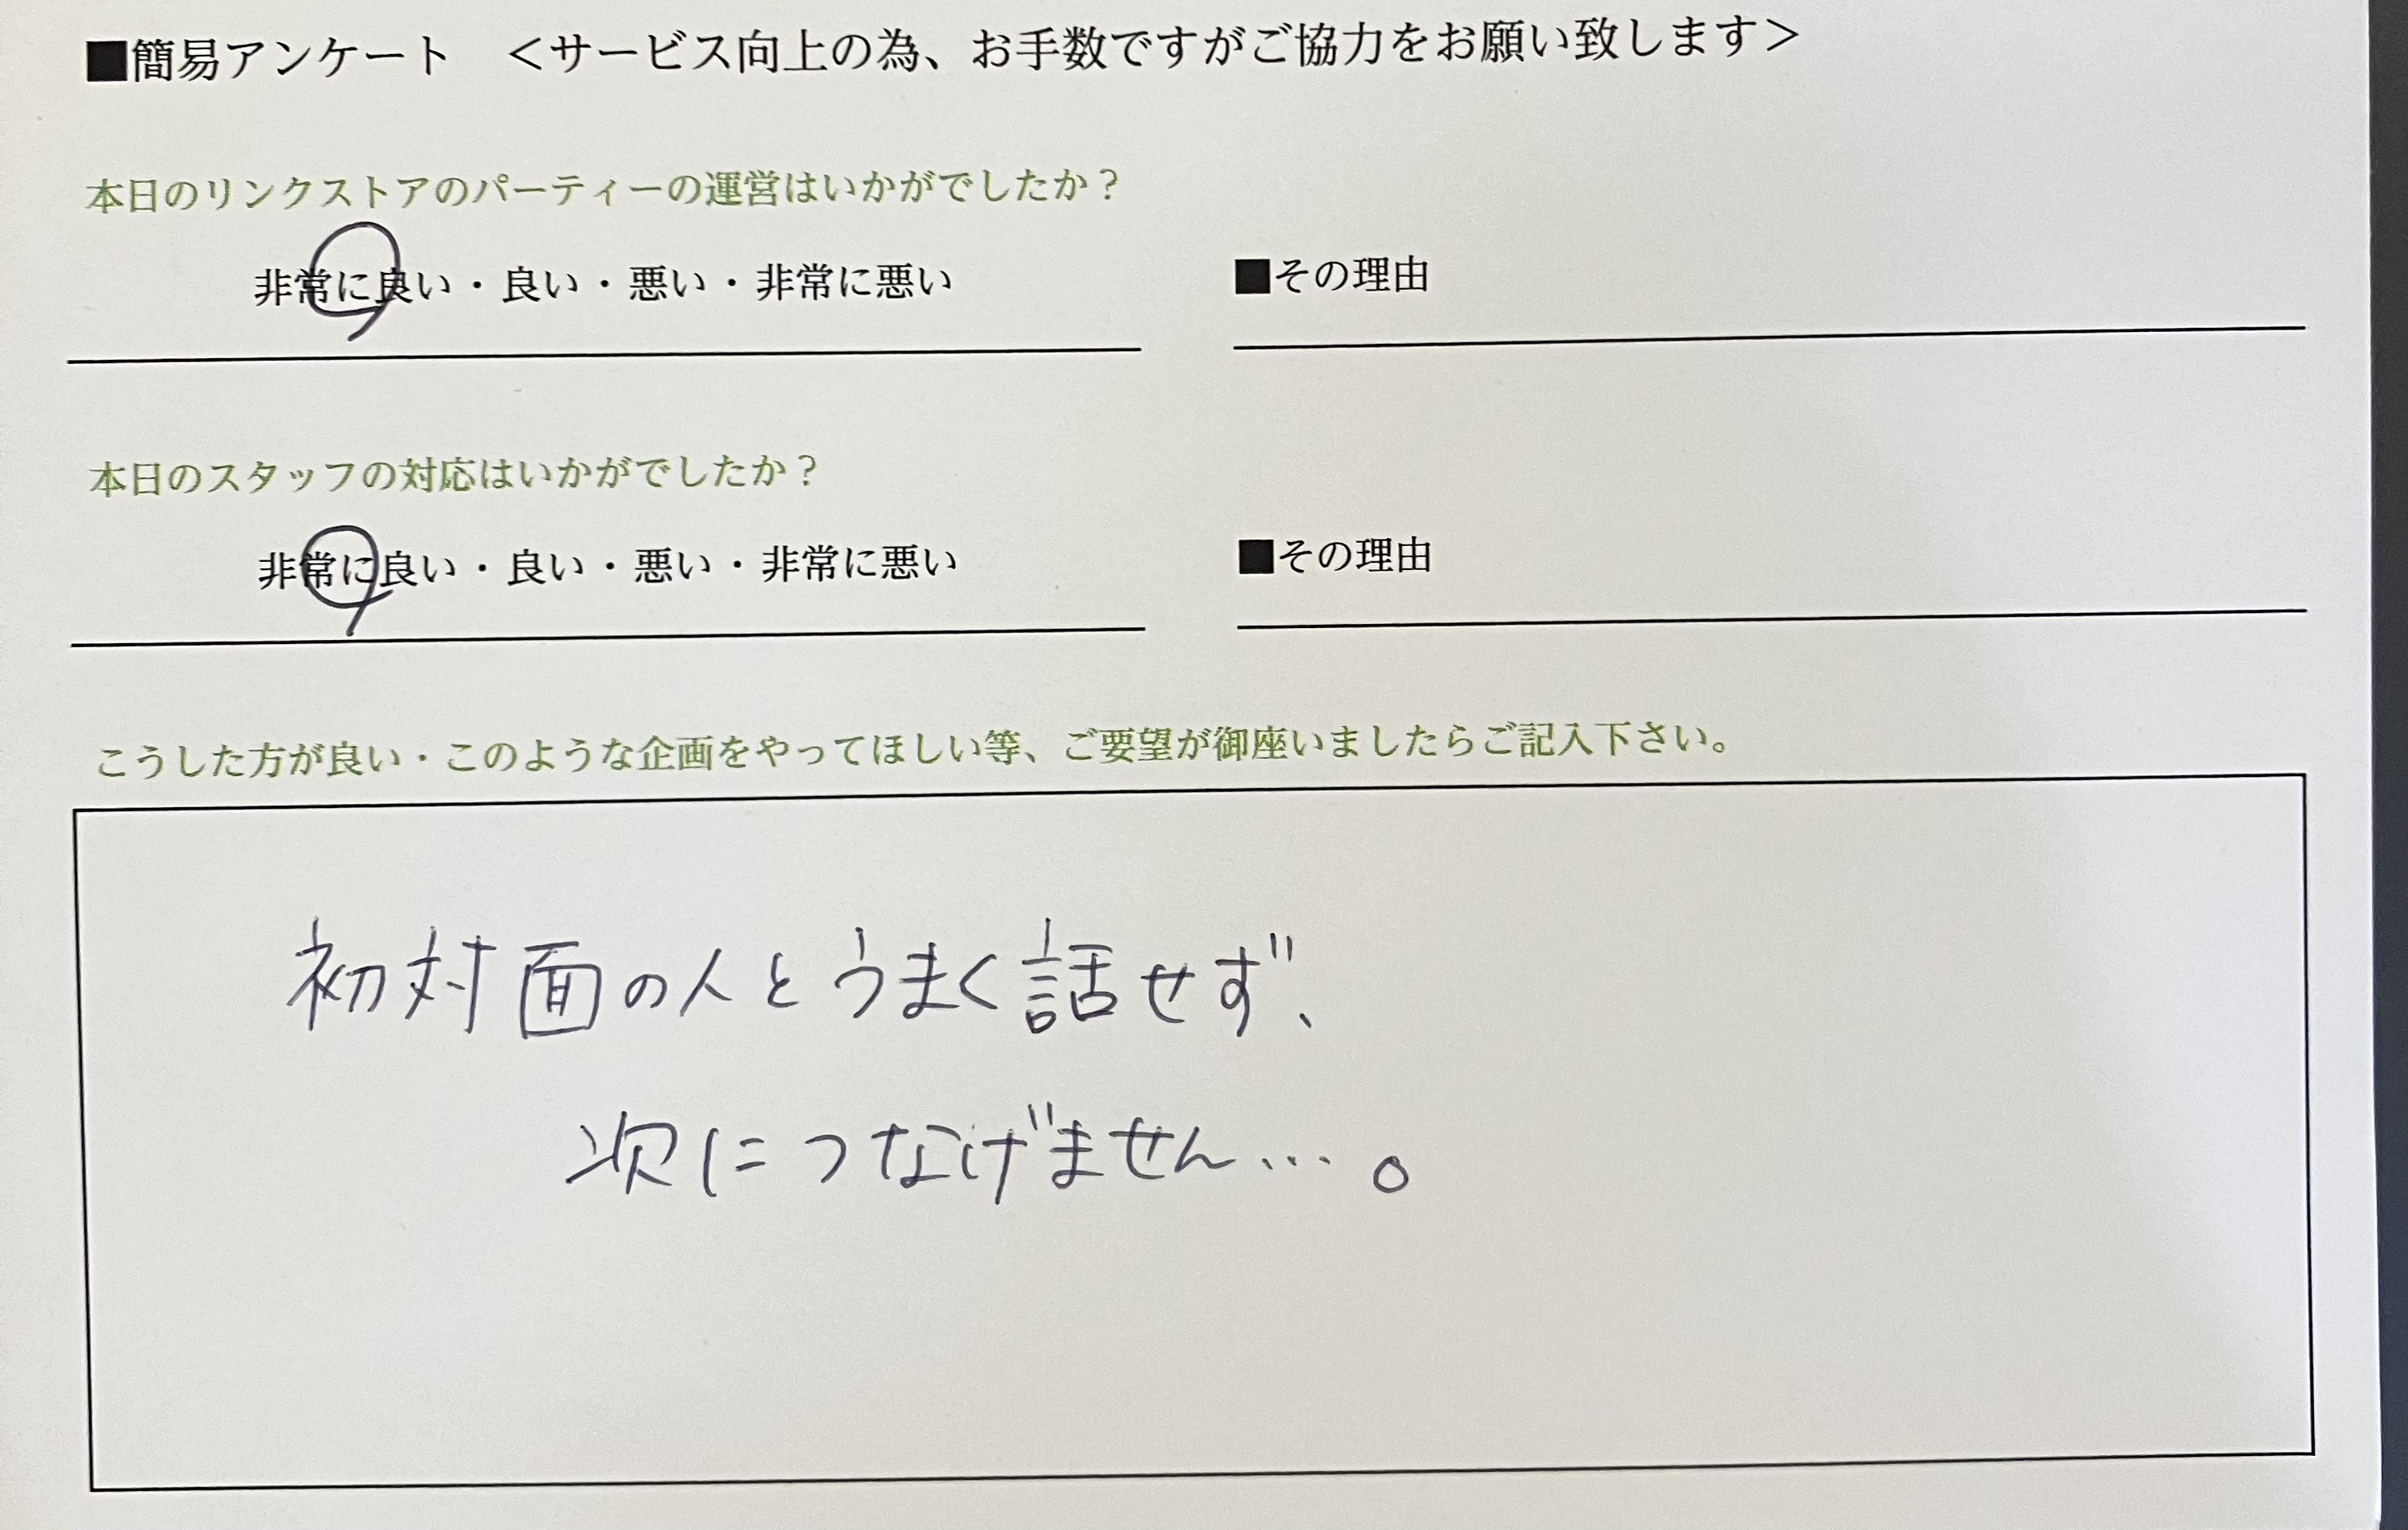 ■簡易アンケート　＜サービス向上の為、お手数ですがご協力をお願い致します＞
本日のリンクストアのパーティーの運営はいかがでしたか？
非常に良い・良い・悪い・非常に悪い
■その理由
本日のスタッフの対応はいかがでしたか？
非常に良い・良い・悪い・非常に悪い
■その理由
こうした方が良い・このような企画をやってほしい等、ご要望が御座いましたらご記入下さい。
初対面の人とうまく話せず、
次につなげません…。